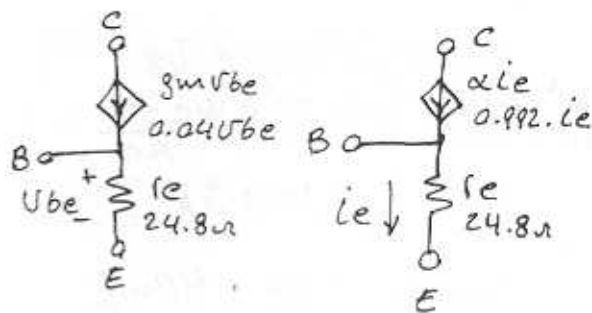 C
gmVbe
0.04Vbe
B
+
Vbe
-
re
24.8Ω
E
C
αie
0.992.ie
B
ie
re
24.8Ω
E